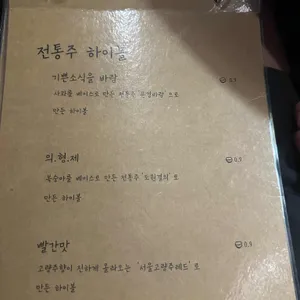 전통주 하이볼
기쁜소식을 바람
0.5
사과를 베이스로 만든 전통주 로
만든 하이볼
의.형.제
0.5
복숭아를 베이스로 만든 전통주 '도원결의' 로
만든 하이볼
빨간맛
0.5
고량주향이 진하게 올라오는 '서울고량주레드' 로
만든 하이볼